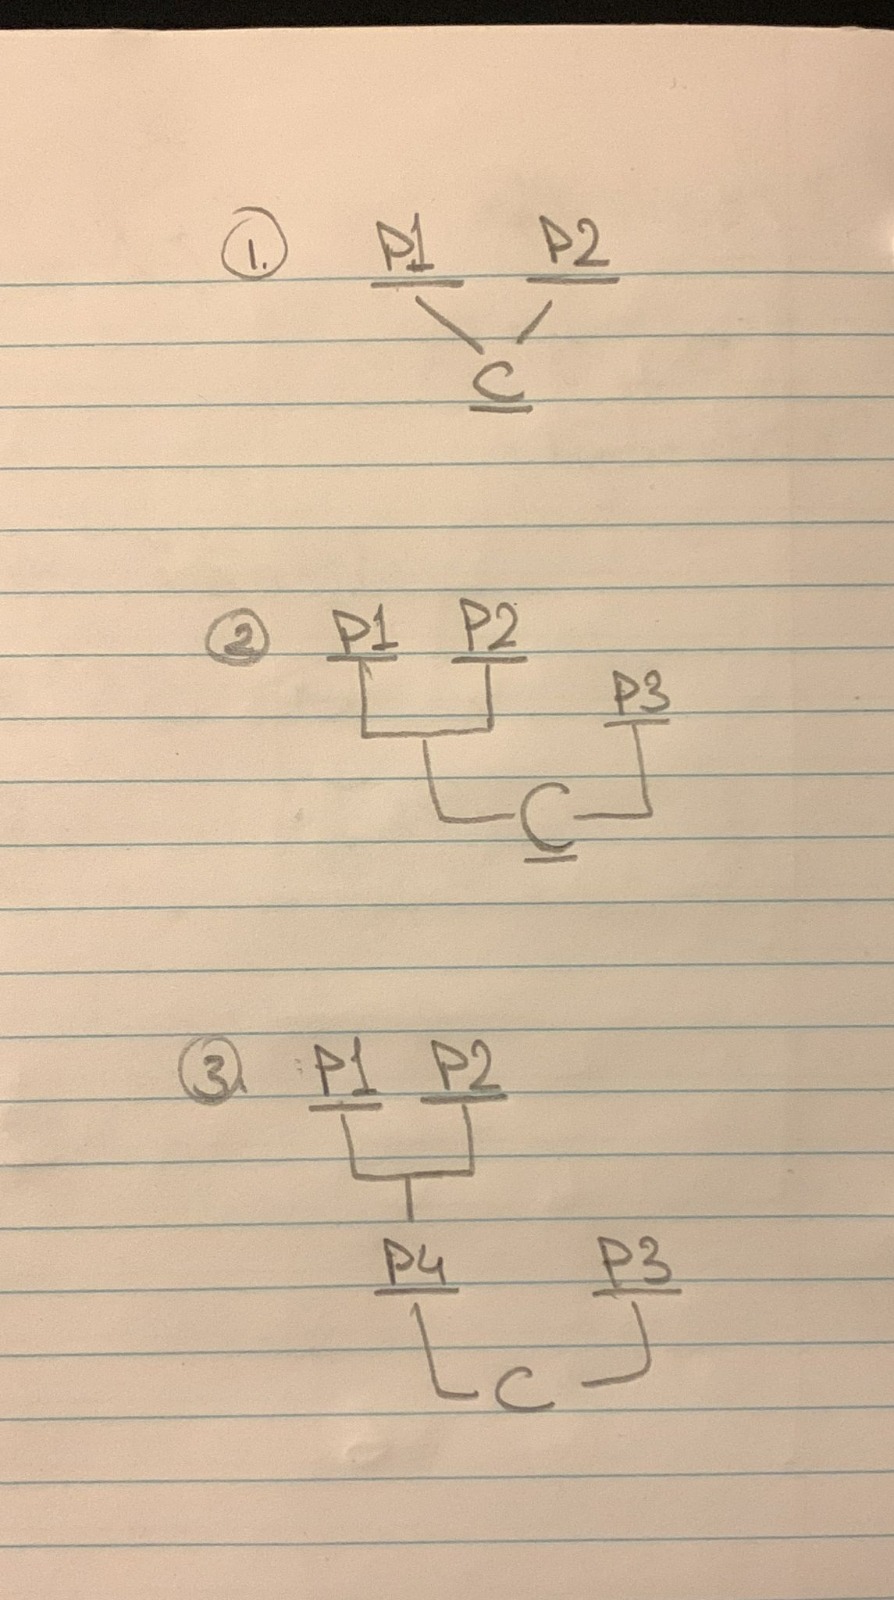 1. P1 P2
C
2 P1 P2
P3
C
3. P1 P2
P4 P3
C